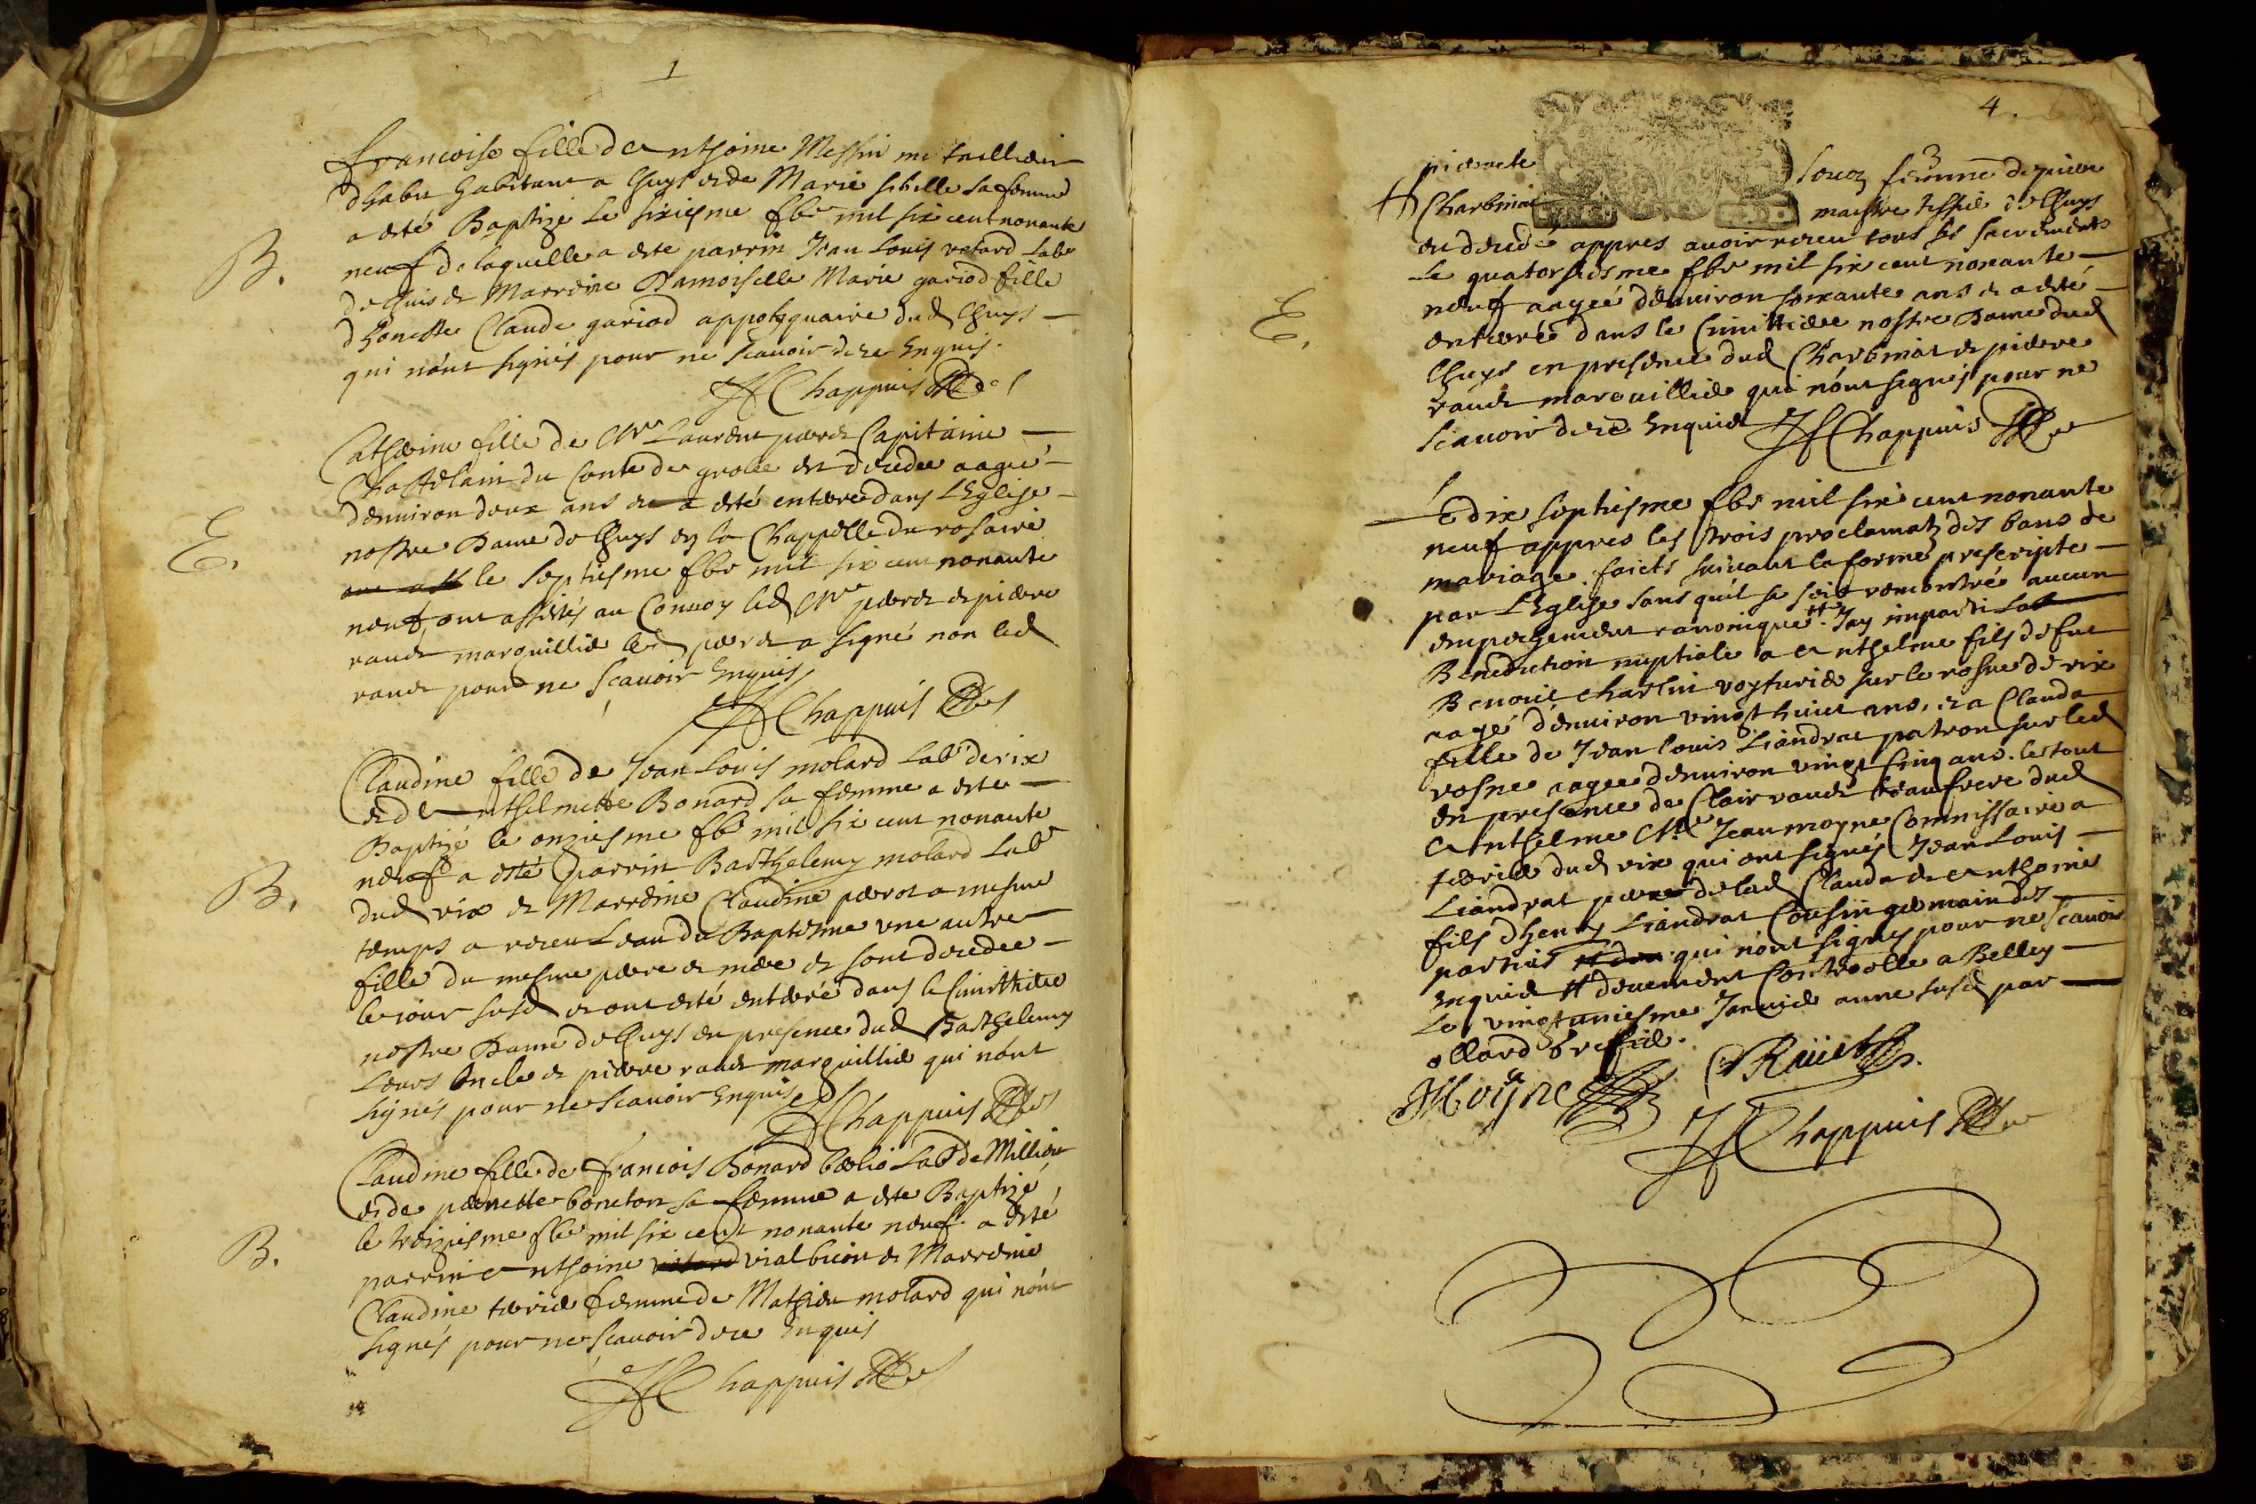 1
francoise fille d'Anthoine Messin me taillieur
dhabit habitant a lhuys et de Marie sibille sa femme
a esté Baptizé le sixiesme fbr mil six cent nonante
B.
neuf de laquelle a este parrin Jean Louis retard Labr
de lhuis et Marreine Damoiselle Marie gariod fille
dhoneste Claude gariod appotiquaire dud lhuys
qui n'ont signés pour ne scavoir de ce Enquis.
Chappuis
Catherine fille de Mre Laurent pierre Capitaine
Chastelain du Conte de grolee est decedee aagée
denviron deux ans et a esté enterré dans l'Eglise
nostre Dame de lhuys en la Chappelle du rosaire
E.
le septiesme fbr mil six cent nonante
neuf ont assistés au Convoy led Mre et pierre
raudt marguillier led a signé non led
raudt pour ne scavoir Enquis
Chappuis
Claudine fille de Jean Louis molard Labr de rix
et d'Anthelmette Bonard sa femme a este
Baptizé le onziesme fbr mil six cent nonante
neuf a esté parrin Barthelemy molard Labr
B.
dud rix et Marreine Claudine a mesme
temps a receu Leau du Baptesme une autre
fille du mesme pere et mere et sont decedee
le iour susd et ont esté enterré dans le Cimettiere
nostre Dame de lhuys en presence dud Barthelemy
Leurs Oncle et pierre raudt marguillier qui n'ont
signés pour ne scavoir Enquis
Chappuis
Claudine fille de francois Bonard Labr de Millieu
et de pernette boneton sa femme a este Baptizé
le treiziesme fbr mil six cent nonante neuf a esté
B.
parrin Anthoine vial bicon et Marreine
Claudine femme de Mathieu molard qui n'ont
signés pour ne scavoir de ce Enquis
Chappuis
4
3
pierrette femme de pierre
Charbinat maistre tissier de lhuys
est decedé appres avoir receu tous ses sacrements
le quatorsiesme fbr mil six cent nonante
neuf aagée denviron soixante ans et a esté
E.
enterré dans le Cimittiere nostre Dame dud
lhuys en presence dud Charbinat et pierre
raudt marguillier qui n'ont signés pour ne
scavoir de ce Enquis Chappuis
Le dix septiesme fbr mil six cent nonante
neuf appres les trois proclamatz des bans de
mariage faicts suivant la forme prescripte
par L'Eglise sans qu'il se soit rencontré aucun
empechement canonique Jay imparti La
Benediction nuptiale a Anthelme fils de fut
Benoit Charlin voyturier sur le rosne de rix
aagé d'environ vingt huict ans, et a Clauda
fille de Jean louis Liandrat patron sur led
rosne aagee denviron vingt sinq ans. le tout
en presence de Clair raudt beaufrere dud
Anthelme Mre Jean moyne Commissaire a
terrier dud rix qui ont signés Jean Louis
Liandrat pere de lad Clauda et Anthoine
fils dhenry Liandrat Cousin germain des
parties qui n'ont signés pour ne scavoir
enquis # deuement Controolle a Belley
Le vingt uniesme Janvier anne susd par
ollard Greffier.
Moyne
Raüct
Chappuis